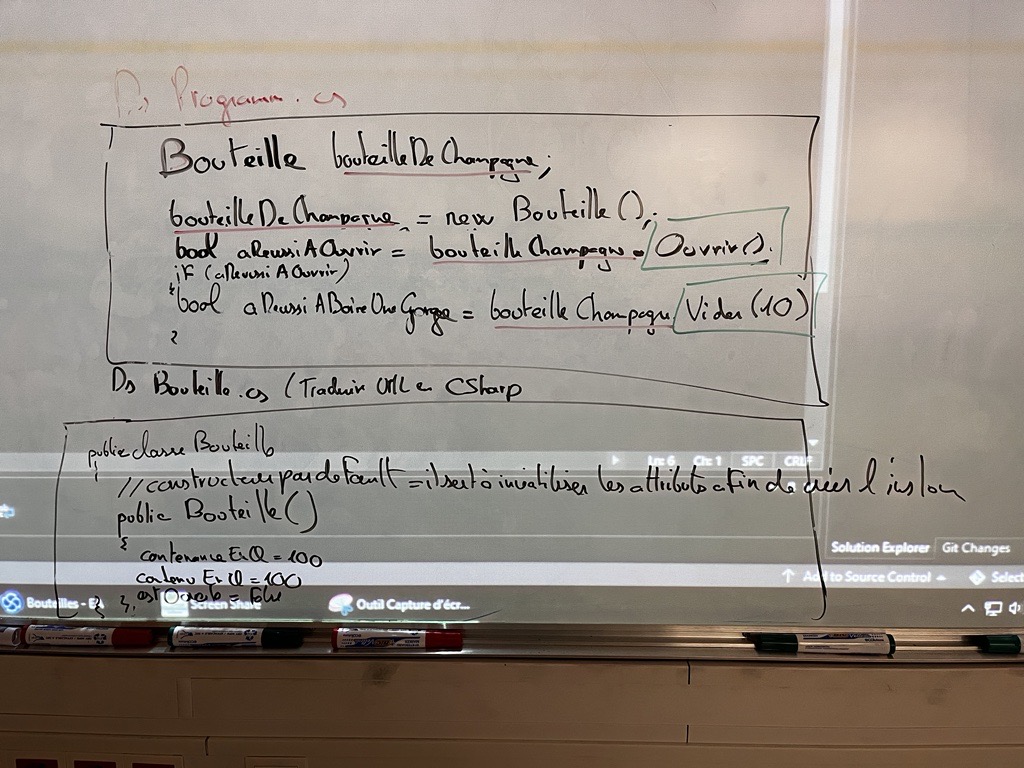 Ds Programm.cs
Bouteille bouteilleDeChampagne;
bouteilleDeChampagne = new Bouteille();
bool aReussiAOuvrir = bouteilleChampagne.Ouvrir();
if (aReussiAOuvrir)
{
bool aReussiABoireUneGorgee = bouteilleChampagne Vider(10)
}
Ds Bouteille.cs (Traduire UML en CSharp
public classe Bouteille
{
//constructeur par default = il sert à initialiser les attributs afin de créer l'
public Bouteille()
{
contenanceEnCl = 100
contenuEnCl = 100
estOuverte = False
} }
Ln: 6 Ch: 1 SPC CRLF
Solution Explorer Git Changes
Add to Source Control Select
Bouteilles - Screen Share Outil Capture d'écr...